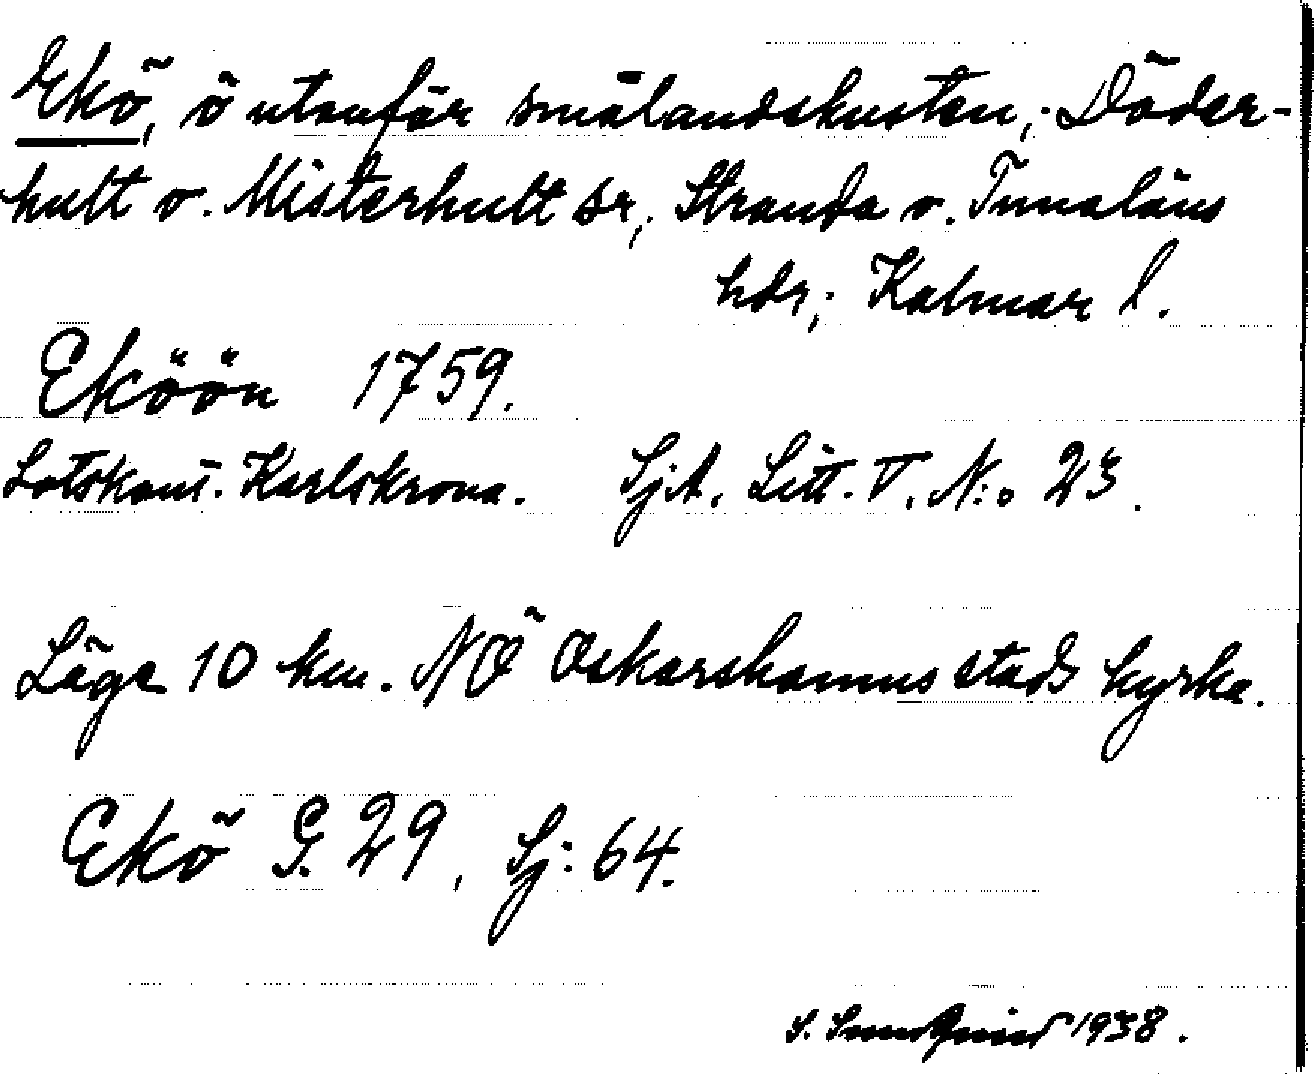 Ekö, ö utanför smålandskusten; Döder-
hult o. Misterhult sr, Stranda o. Tunaläns
hdr; Kalmar l.
Eköön 1759.
Lotskont. Karlskrona. SjA, Litt. V, N:o 23.
Läge 10 km. NÖ Oskarshamns stads kyrka.
Ekö G. 29, Sj: 64.
S. 1938.